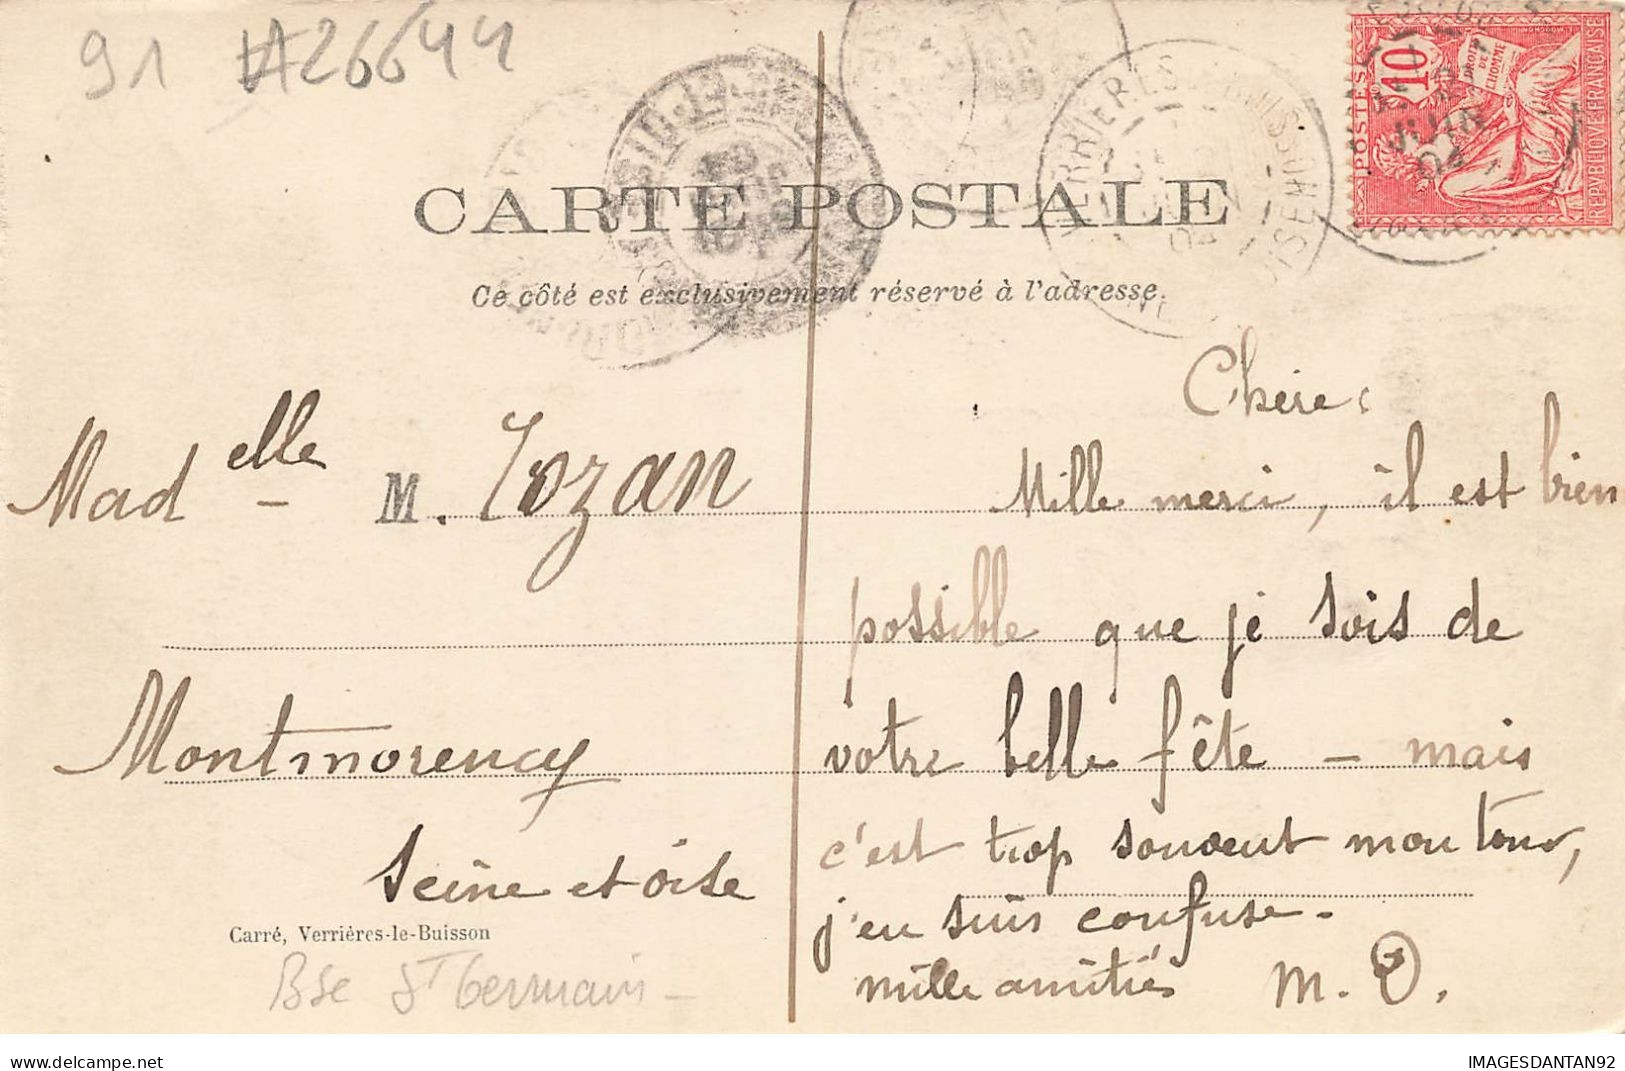 91 A26644
POSTES 10
DROITS DE L'HOMME
REPVBLIQVE FRANÇAISE
VERRIERES
JUIN 04
CARTE POSTALE
Ce côté est exclusivement réservé à l'adresse.
Madelle M. Tozan
Montmorency
Seine et Oise
Carré, Verrières-le-Buisson
Bse St Germain
Chère :
Mille merci, il est bien
possible que je sois de
votre belle fête – mais
c'est trop souvent mon tour,
j'en suis confuse.
mille amitiés M. O.
IMAGESDANTAN92